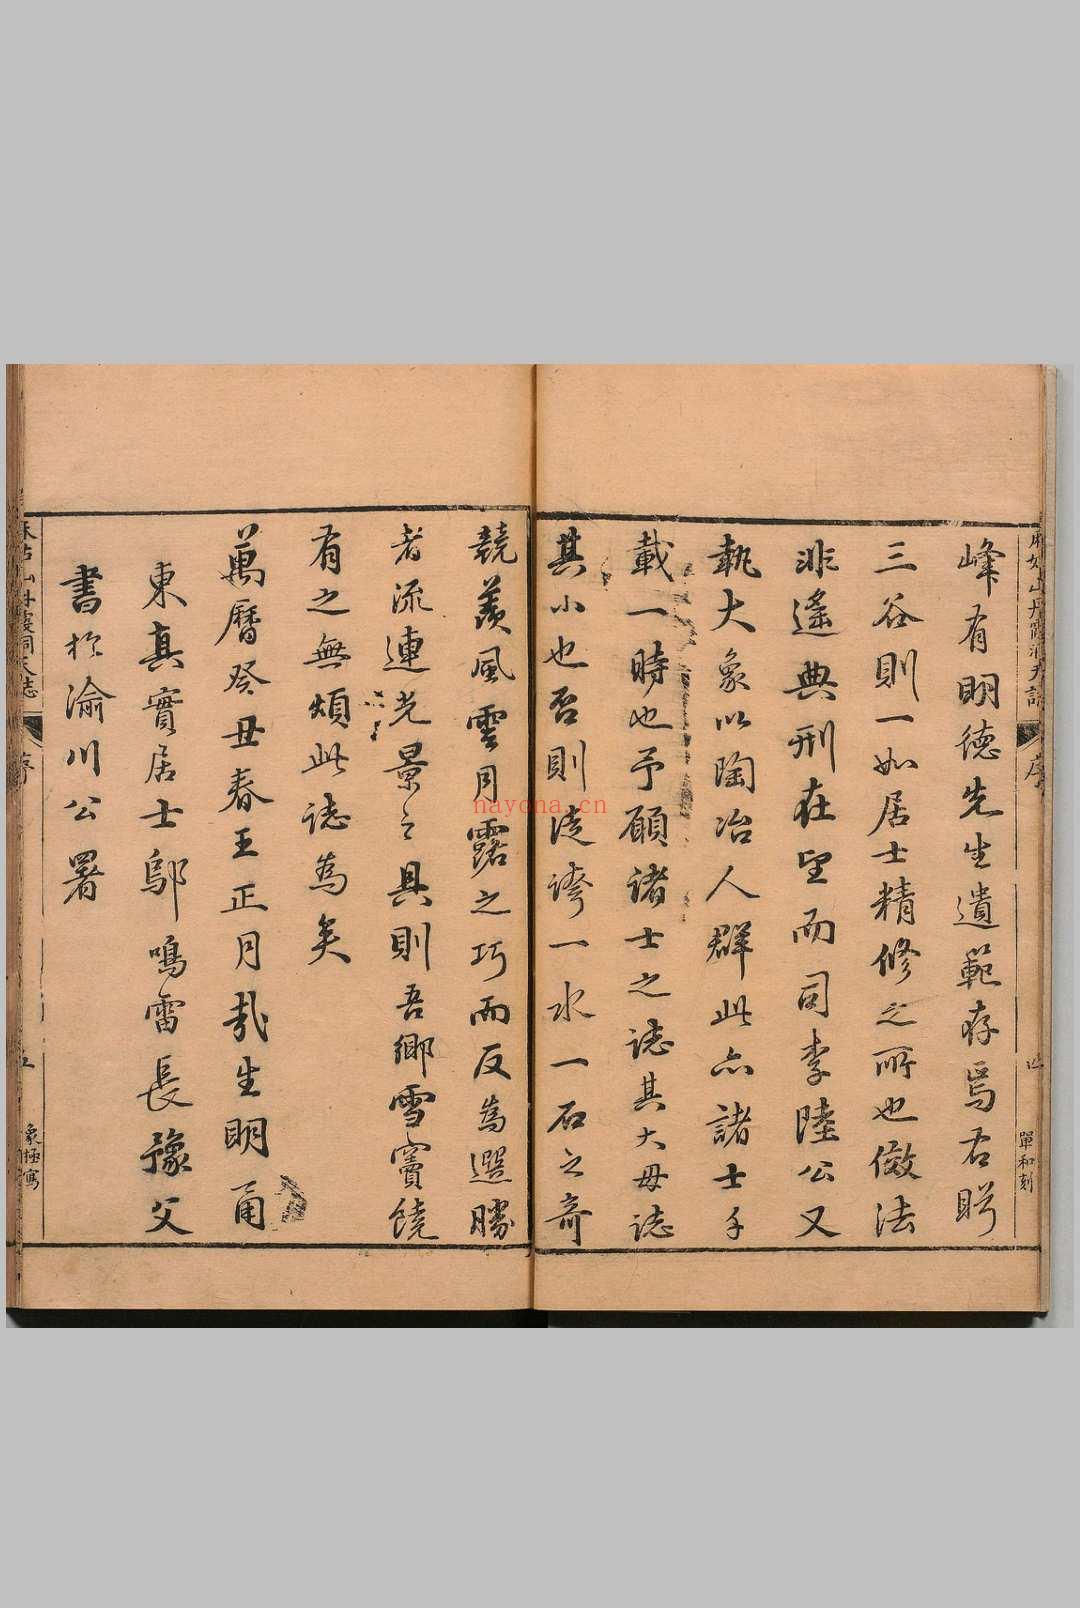 麻姑山丹霞洞天誌
序
四
單和刻
峰有明德先生遺範存焉右睇
三谷則一如居士精修之所也倣法
非遙典刑在望而司李陸公又
執大象以陶冶人群此亦諸士千
載一時也予願諸士之誌其大毋誌
其小也否則徒誇一水一石之奇
競羨風雲月露之巧而反為選勝
者流連光景之具則吾鄉雪竇饒
有之無煩此誌為矣
萬曆癸丑春王正月哉生明甬
東真實居士鄔鳴雷長豫父
書於渝川公署
麻姑山丹霞洞天誌
序
五
象極寫
nayona.cn